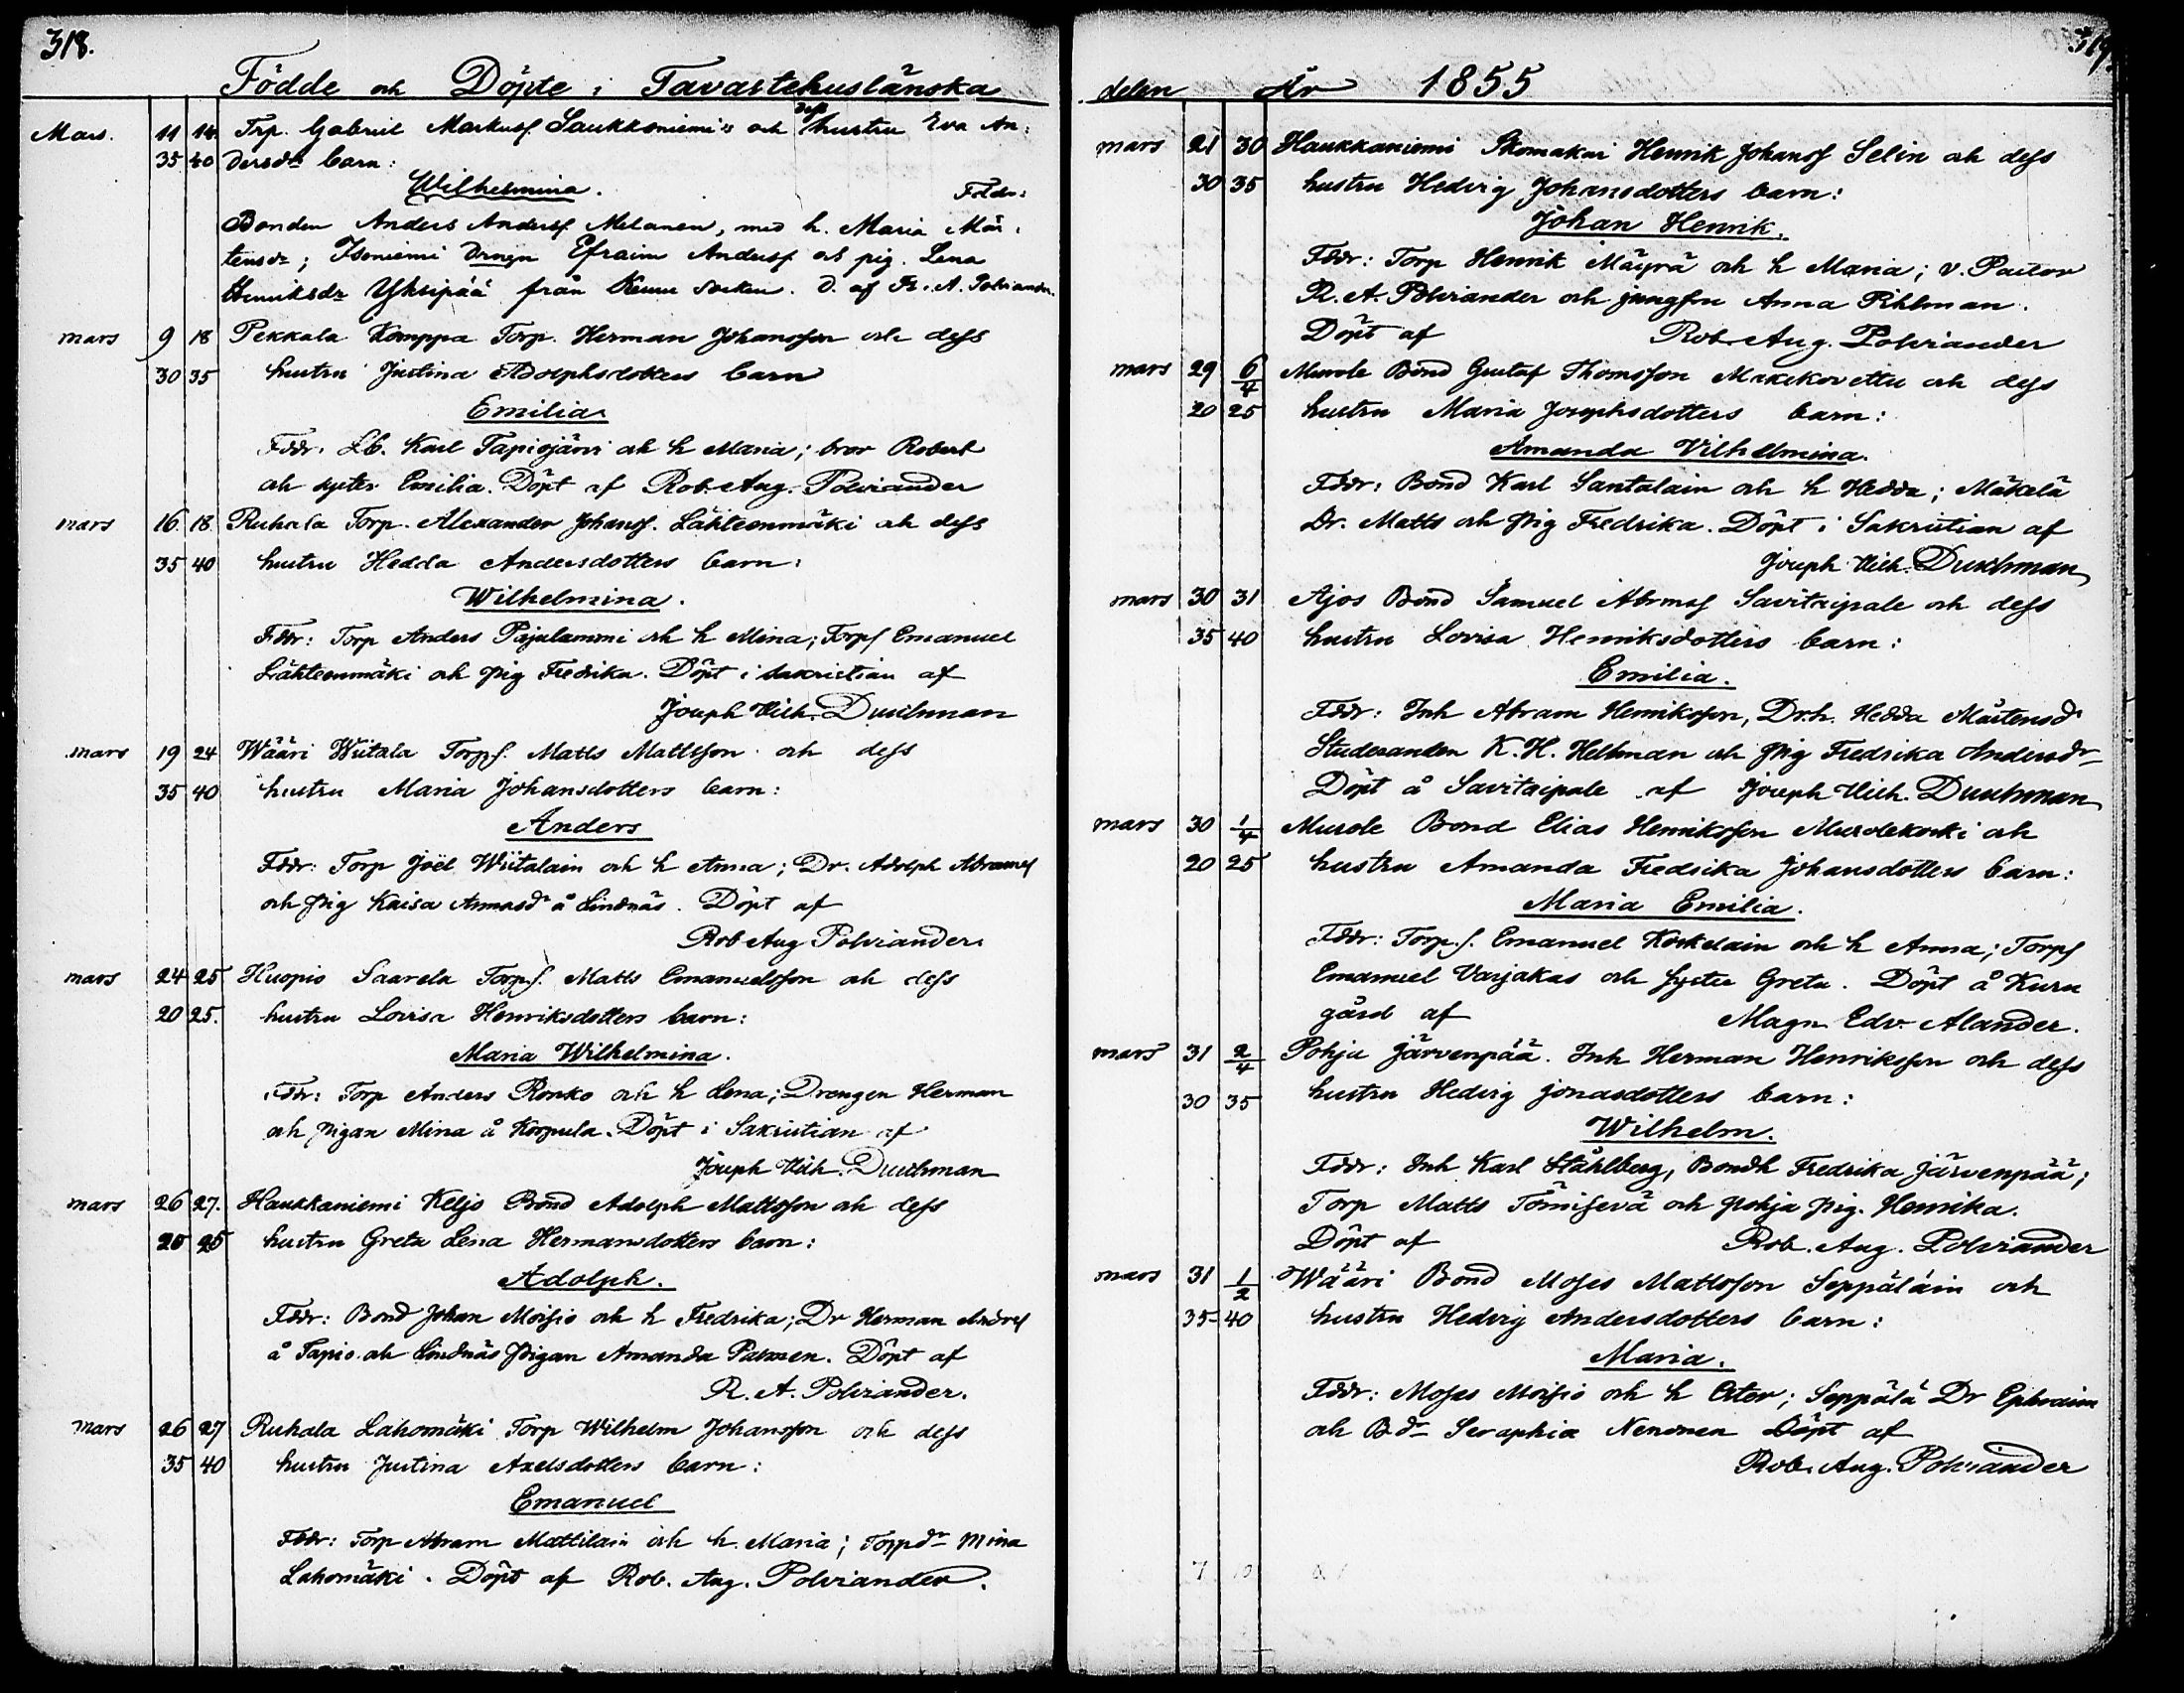 318.
Födde och Döpte i Tavastehuslänska
Mars. 11 14. Trp. Gabriel Markusf. Saukkoniemi's och dess hustru Eva An:
35 40 dersdr barn:
Wilhelmina.
Faddr:
Bonden Anders Andersf. Melanen, med h. Maria Mår:
tensdr; Isoniemi Drngn Efraim Andersf och pig. Lena
Henriksdr Yksipää från Kuru socken. D. af R. A. Polviander.
mars 9 18 Pekkala Komppa Torp. Herman Johansson och dess
30 35 hustru Justina Adolphsdotters barn
Emilia
Fddr: Lb. Karl Tapiojärvi och h Maria; bror Robert
och syster Emilia. Döpt af Rob. Aug. Polviander
mars 16. 18. Ruhala Torp. Alexander Johansf. Lähteenmäki och dess
35 40 hustru Hedda Andersdotters barn:
Wilhelmina.
Fddr: Torp Anders Pajulammi och h Mina; Torpf Emanuel
Lähteenmäki och pig Fredrika. Döpt i sakristian af
Joseph Wilh. Duchman
mars 19 24 Wääri Wiitala Torpf. Matts Mattsson och dess
35 40 hustru Maria Johansdotters barn:
Anders
Fddr: Torp Joël Wiitalain och h Anna; Dr. Adolph Abramsf
och pig Kaisa Annasdr å Lindnäs. Döpt af
Rob Aug Polviander.
mars 24 25 Kuopio Saarela Torpf. Matts Emanuelsson och dess
20 25. hustru Lovisa Henriksdotters barn:
Maria Wilhelmina.
Fddr: Torp Anders Ronko och h Lena; Drengen Herman
och pigan Mina å Korpula. Döpt i Sakristian af
Joseph Wilh. Duchman
mars 26 27. Haukkaniemi Keljo Bond Adolph Mattsson och dess
20 25 hustru Greta Lena Hermansdotters barn:
Adolph.
Fddr: Bond Johan Moisio och h Fredrika; Dr Herman Andersf
å Tapio och Lindnäs pigan Amanda. Döpt af
R. A. Polviander.
mars 26 27 Ruhala Lahomäki Torp Wilhelm Johansson och dess
35 40 hustru Justina Axelsdotters barn:
Emanuel
Fddr: Torp Abram Mattilain och h. Maria; Torpdr Mina
Lahomäki. Döpt af Rob. Aug. Polviander.
319.
delen År 1855
mars 21 30 Haukkaniemi Skomakai Henrik Johansf Selin och dess
30 35 hustru Hedvig Johansdotters barn:
Johan Henrik.
Fddr: Torp Henrik Mäyrä och h Maria; v. Pastor
R. A. Polviander och jungfru Anna Pihlman.
Döpt af Rob. Aug. Polviander
mars 29 6/4 Murole Bond Gustaf Thomsson Makekovettu och dess
20 25 hustru Maria Josephsdotters barn:
Amanda Vilhelmina.
Fddr: Bond Karl Santalain och h Hedda; Mäkelä
Dr. Matts och pig Fredrika. Döpt i Sakristian af
Joseph Wilh. Duchman
mars 30 31 Ajos Bond Samuel Abrmsf Savitaipale och dess
35 40 hustru Lovisa Henriksdotters barn:
Emilia.
Fddr: Inh Abram Henriksson, Dr.h. Hedda Mårtensdr
Studeranden K. H. Hellman och pig Fredrika Andersdr
Döpt å Savitaipale af Joseph Wilh. Duchman
mars 30 1/4 Murole Bond Elias Henriksson Murolekoski och
20 25 hustru Amanda Fredrika Johansdotters barn:
Maria Emilia.
Fddr: Torp.f. Emanuel Koskelain och h Anna; Torpf
Emanuel Varjakas och syster Greta. Döpt å Kuru
gård af Magn. Edv. Alander.
mars 31 2/4 Pohja Järvenpää. Inh Herman Henriksson och dess
30 35 hustru Hedvig Jonasdotters barn:
Wilhelm.
Fddr: Inh Karl Ståhlberg, Bondh Fredrika Järvenpää;
Torp Matts och Pohja pig. Henrika.
Döpt af Rob. Aug. Polviander
mars 31 1/2 Wääri Bond Moses Mattsson Seppäläin och
35 40 hustru Hedvig Andersdotters barn:
Maria.
Fddr: Moses Moisio och h Ester; Seppälä Dr Ephraim
och B.dr Seraphia Nenonen Döpt af
Rob. Aug. Polviander